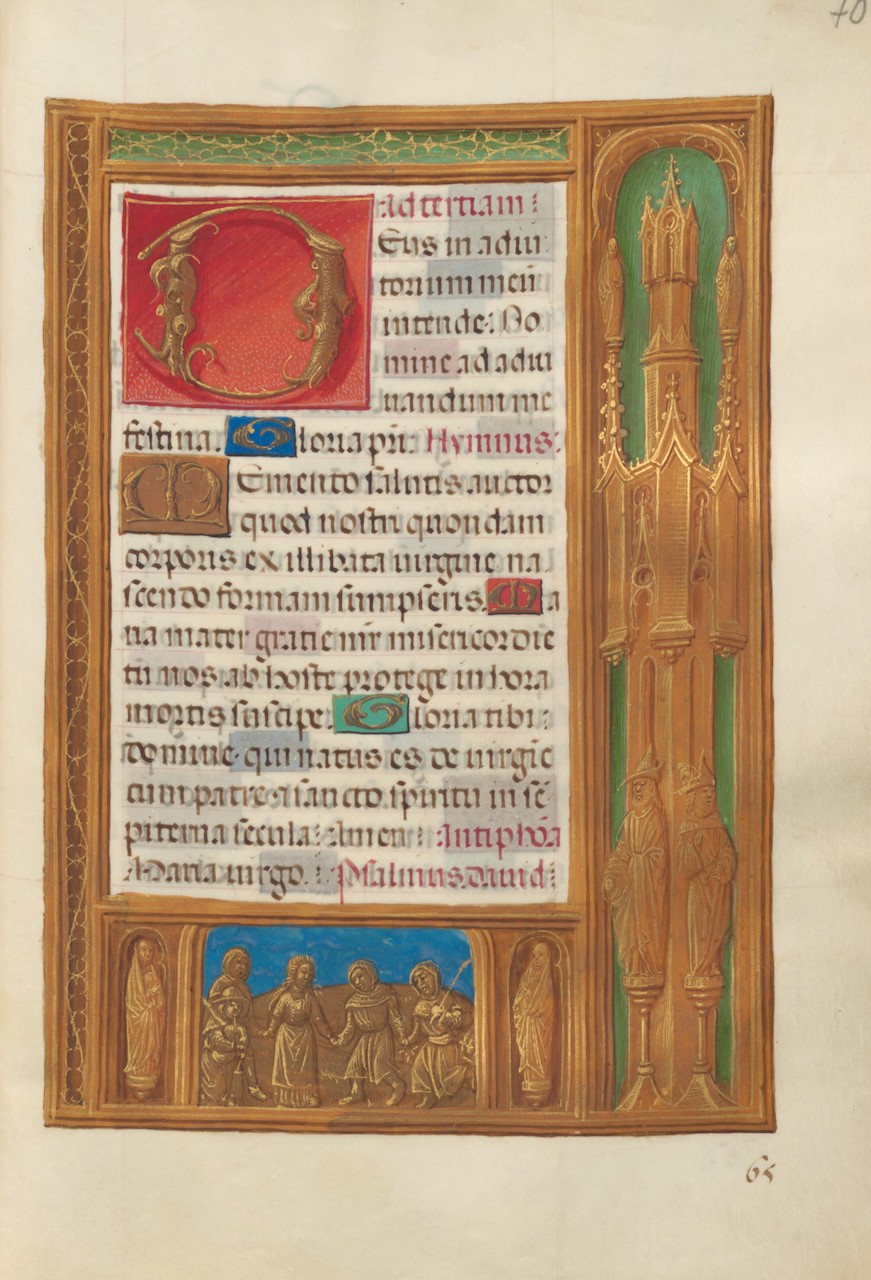 70
Ad tertiam:
DEus in adiu
torium meū
intende: Do
mine ad adiu
uandum me
festina. Gloria pri. Hymnus:
MEmento salutis auctor
quod nostri quondam
corporis ex illibata uirgine na
scendo formam sumpseris. Ma
ria mater gratie mr misericordie
tu nos ab hoste protege in hora
mortis suscipe. Gloria tibi:
domine qui natus es de uirgīe
cum patre et sancto spiritu in sē
piterna secula: Amen: Antiphōa
Maria uirgo.: Psalmus dauid:
65